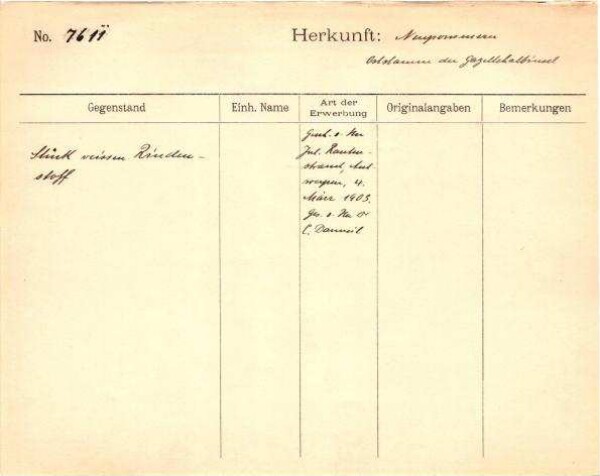 No. 7611
Herkunft: Neupommern
Oststamme der Gazellehalbinsel
Gegenstand
Einh. Name
Art der
Erwerbung
Originalangaben
Bemerkungen
Stück weissen Rinden-
stoff
Gesch. v. Hrn
Jul. Rauten-
strauch, Ant-
werpen, 4.
März 1903.
Ges. v. Hrn Dr
C. Danneil